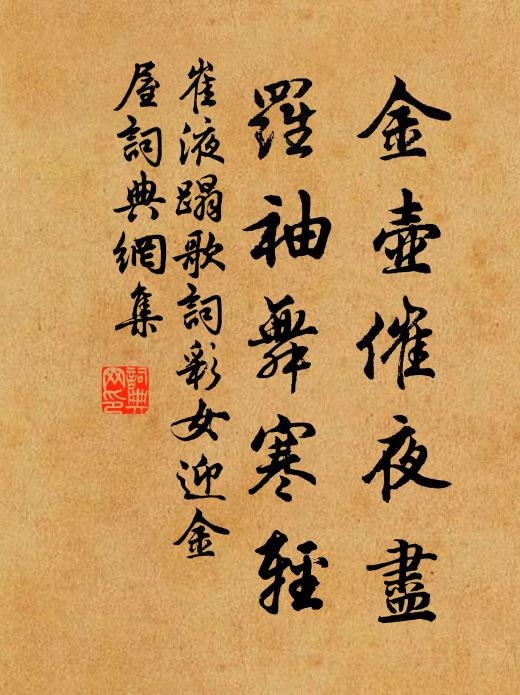 金壺催夜盡
羅袖舞寒輕
崔液蹋歌詞彩女迎金
屋詞典網集
詞典
網印